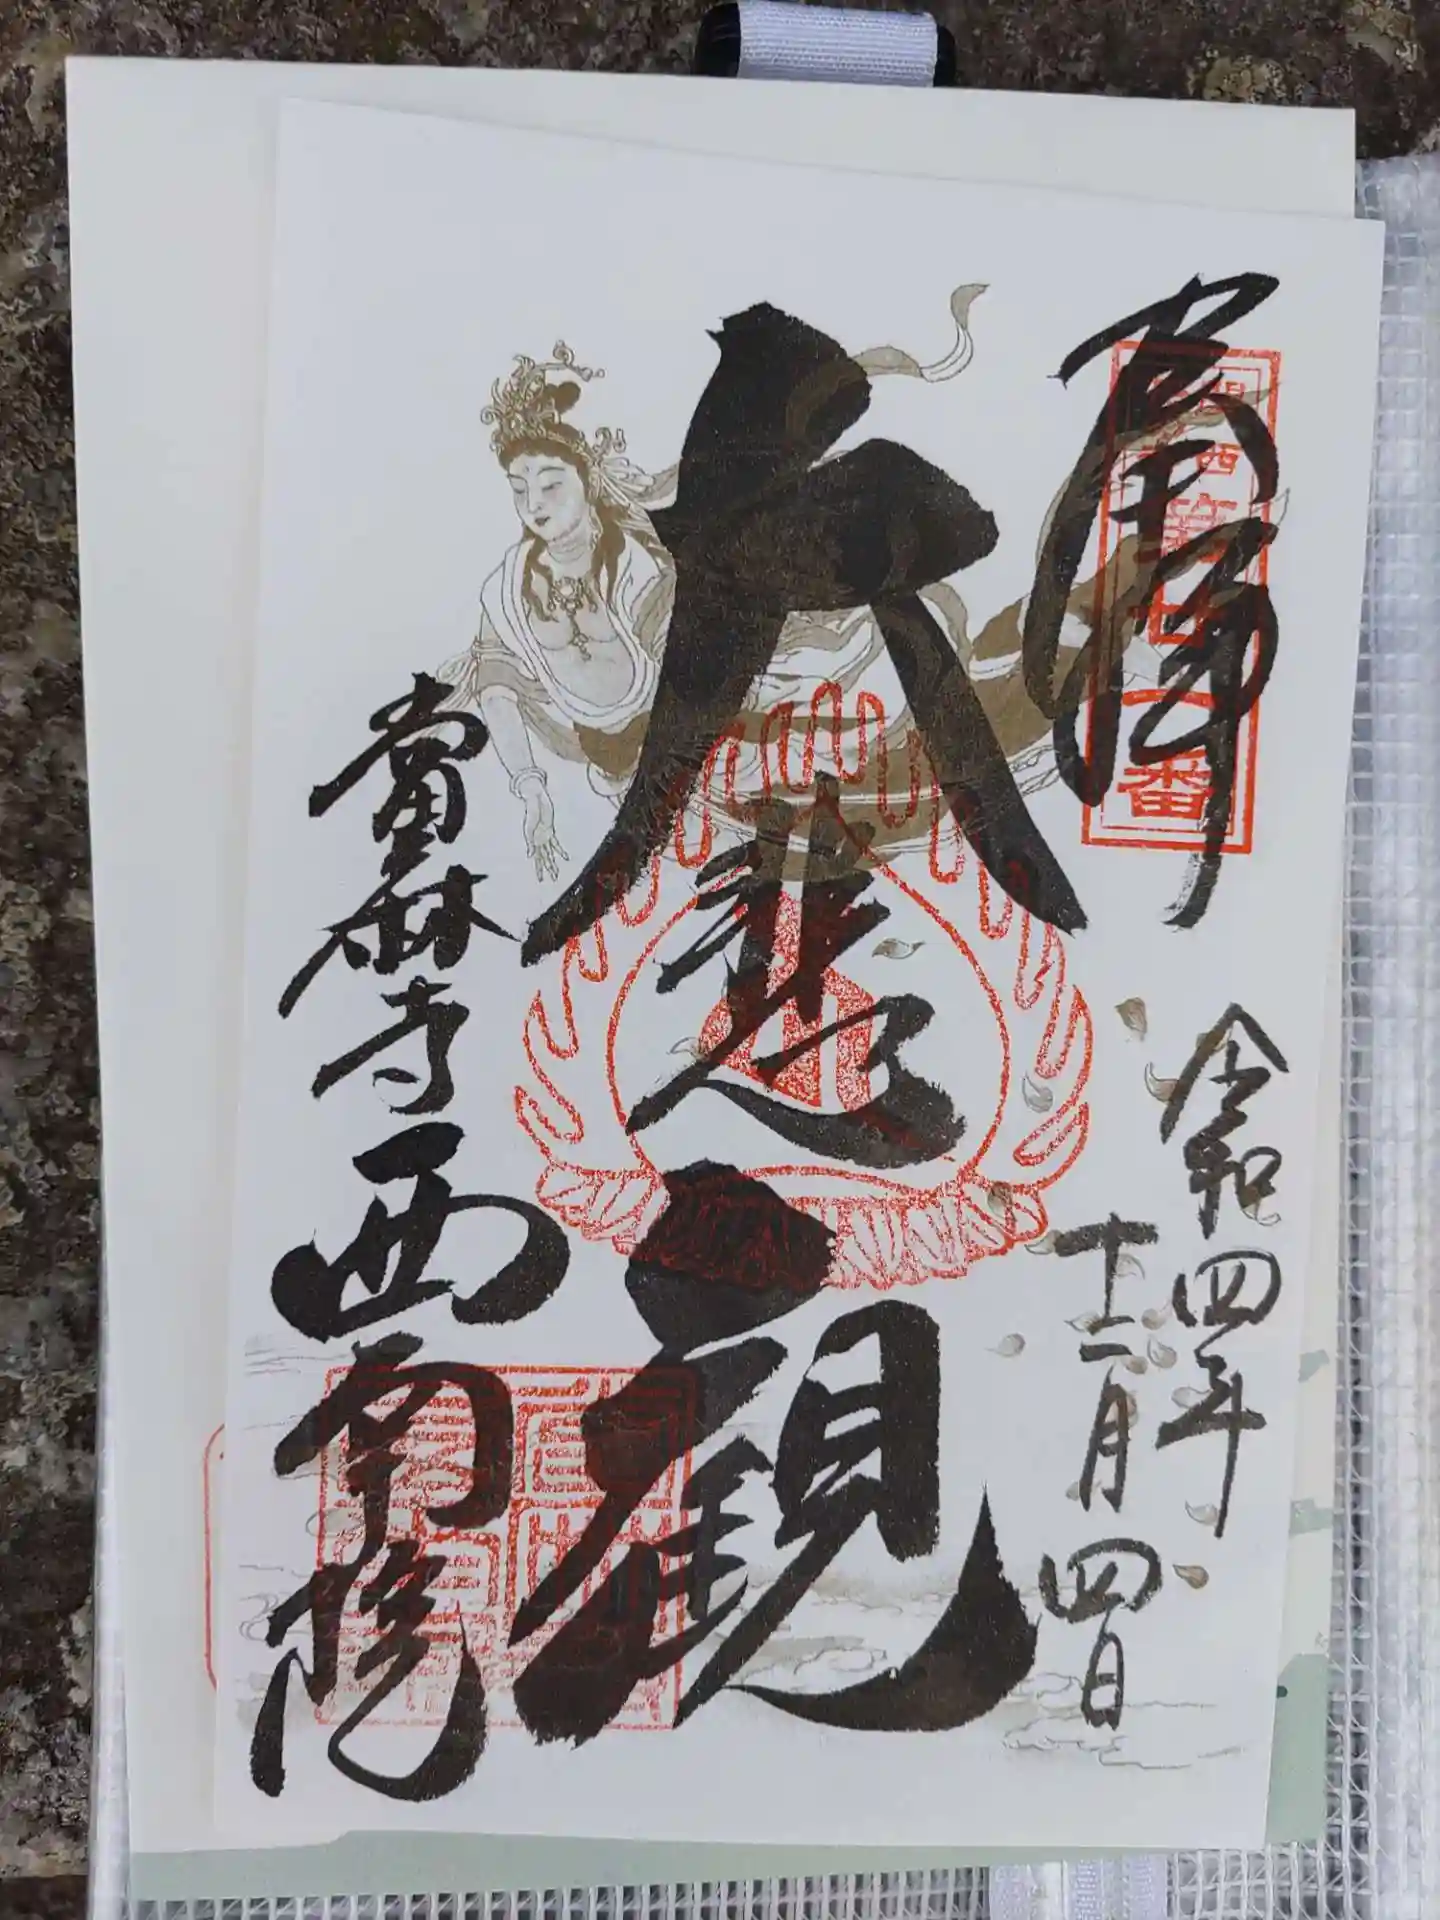 奉拝
関西第廿一番
令和四年
十二月四日
大悲観
當麻寺
西南院